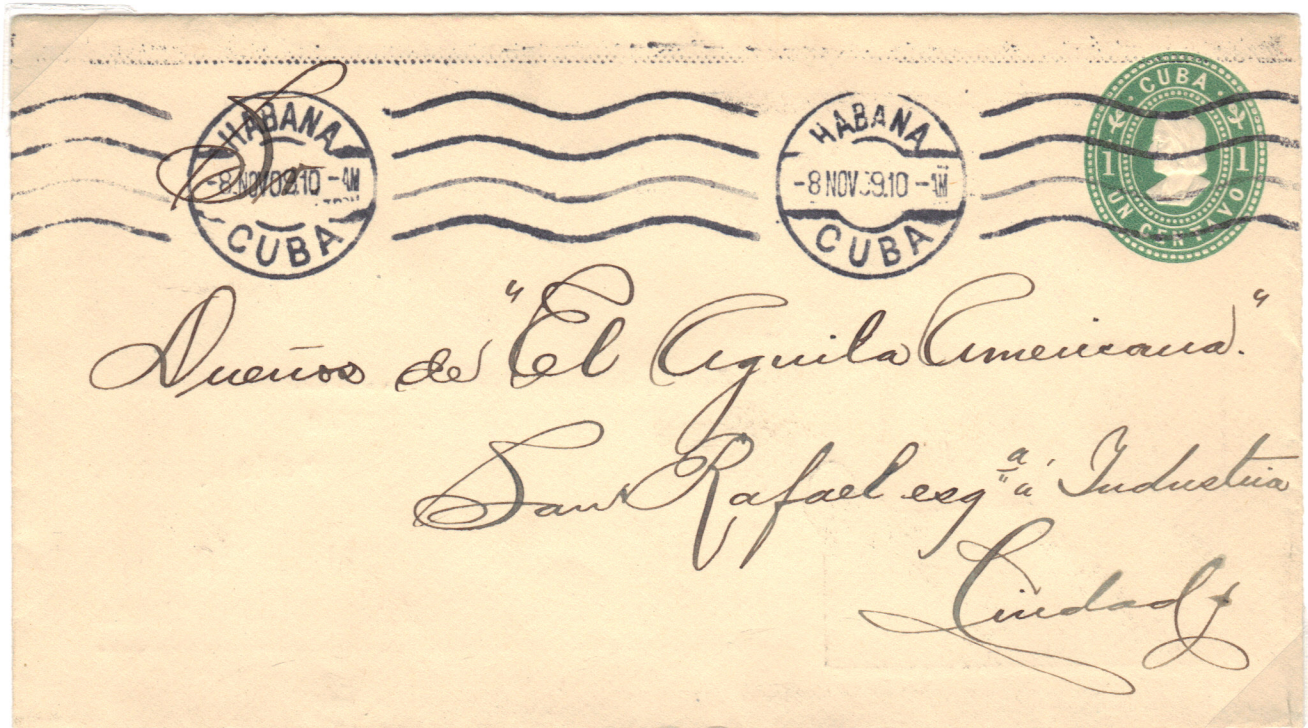 HABANA
-8 NOV 09.10 -AM
CUBA
HABANA
-8 NOV 09.10 -AM
CUBA
CUBA
1 1
UN CENTAVO
Dueños de "El Aguila Americana."
San Rafael esqª á Industria
Ciudad